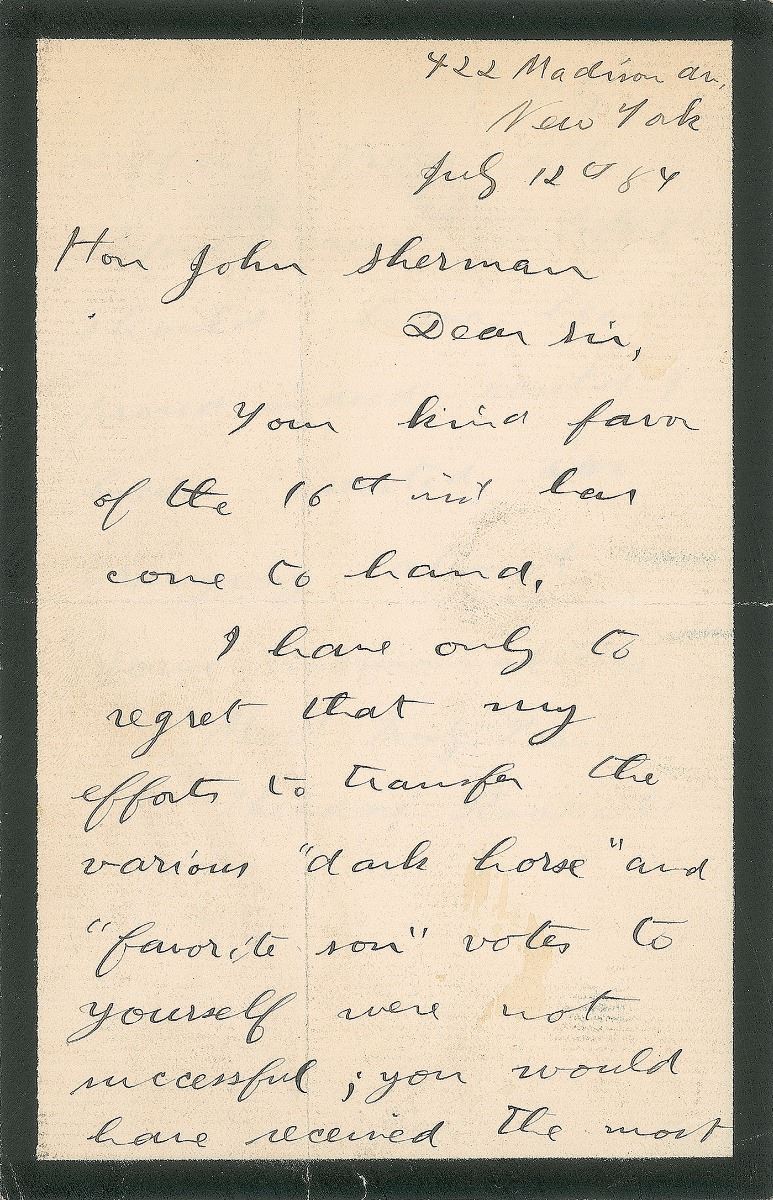 422 Madison av,
New York
July 12th 84
Hon John Sherman
Dear Sir,
Your kind favor
of the 16th inst has
come to hand.
I have only to
regret that my
efforts to transfer the
various "dark horse" and
"favorite son" votes to
yourself were not
successful; you would
have received the most